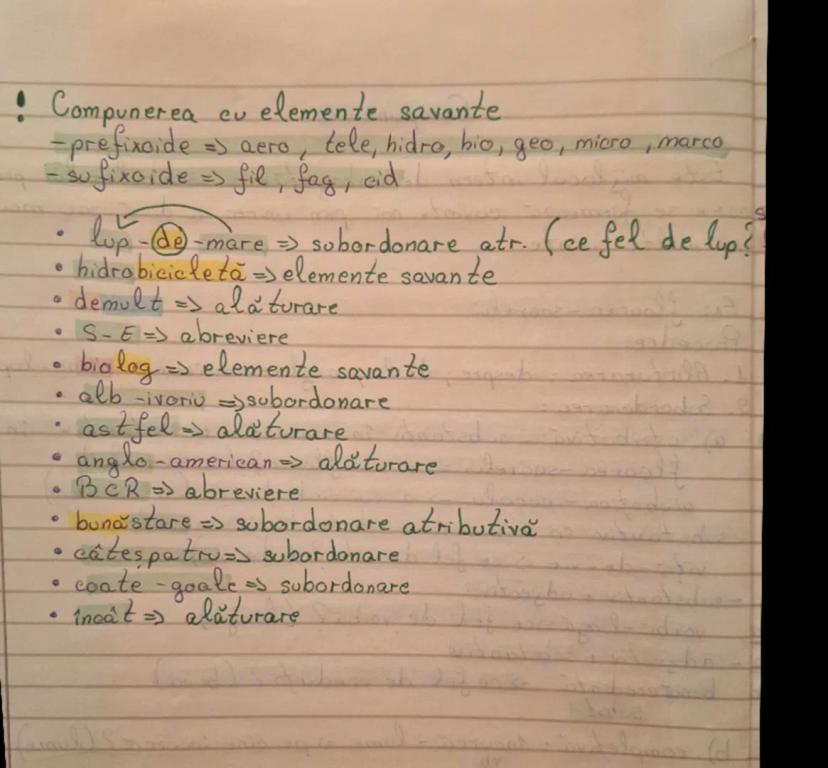 ! Compunerea cu elemente savante
-prefixoide => aero, tele, hidro, bio, geo, micro, marco
-sufixoide => fil, fag, cid
• lup-de-mare => subordonare atr. (ce fel de lup?
• hidrobicicletă => elemente savante
• demult => alăturare
• S-E => abreviere
• biolog => elemente savante
• alb-ivoriu => subordonare
• astfel => alăturare
• anglo-american => alăturare
• BCR => abreviere
• bunăstare => subordonare atributivă
• câteșpatru => subordonare
• coate-goale => subordonare
• încât => alăturare